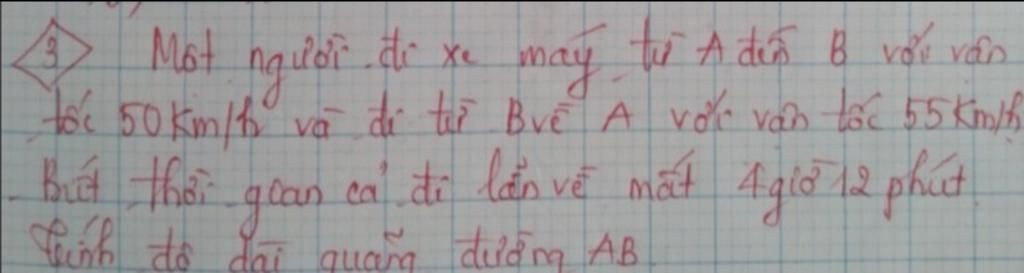 3 Một người đi xe máy từ A đến B với vận
tốc 50km/h và đi từ B về A với vận tốc 55km/h
Biết thời goan cả đi lẫn về mất 4giờ 12 phút
Tính độ dài quãng đường AB